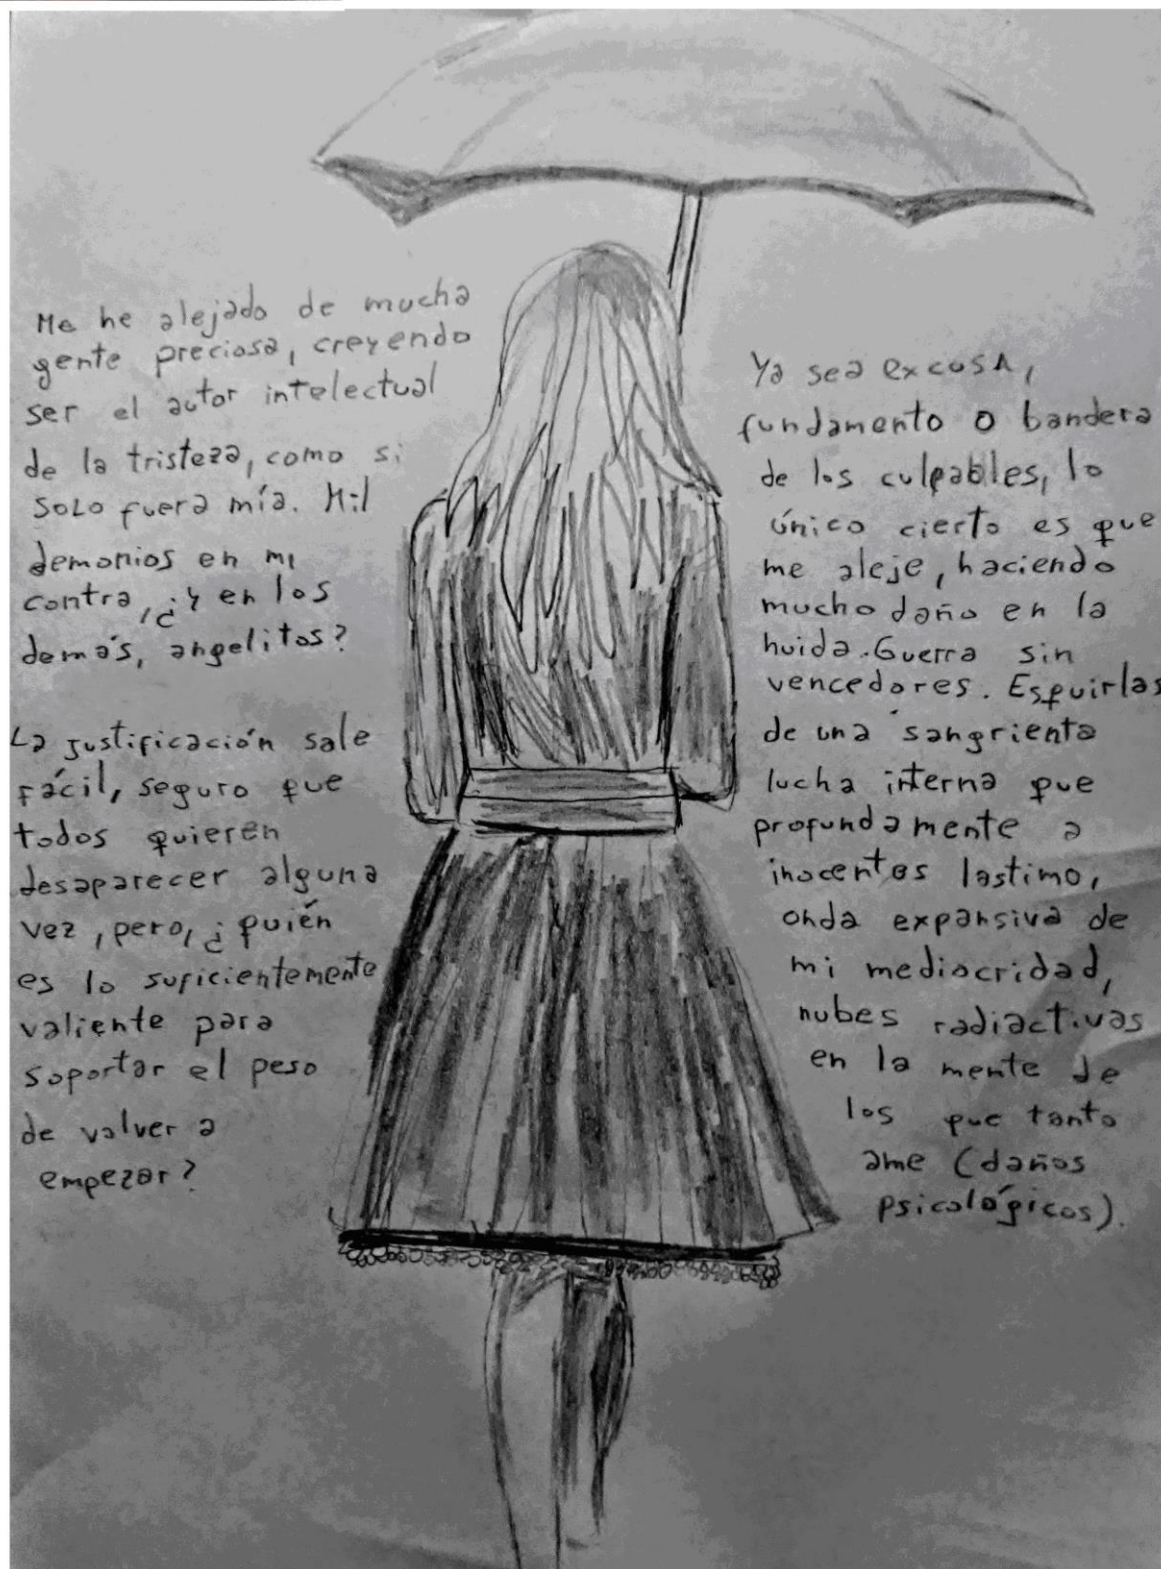 Me he alejado de mucha
gente preciosa, creyendo
ser el autor intelectual
de la tristeza, como si
solo fuera mía. Mil
demonios en mi
contra, ¿y en los
demás, angelitos?
La justificación sale
fácil, seguro que
todos quieren
desaparecer alguna
vez, pero, ¿quién
es lo suficientemente
valiente para
soportar el peso
de volver a
empezar?
Ya sea excusa,
fundamento o bandera
de los culpables, lo
único cierto es que
me aleje, haciendo
mucho daño en la
huida. Guerra sin
vencedores. Esquirlas
de una sangrienta
lucha interna que
profundamente a
inocentes lastimo,
onda expansiva de
mi mediocridad,
nubes radiactivas
en la mente de
los que tanto
ame (daños
psicológicos).